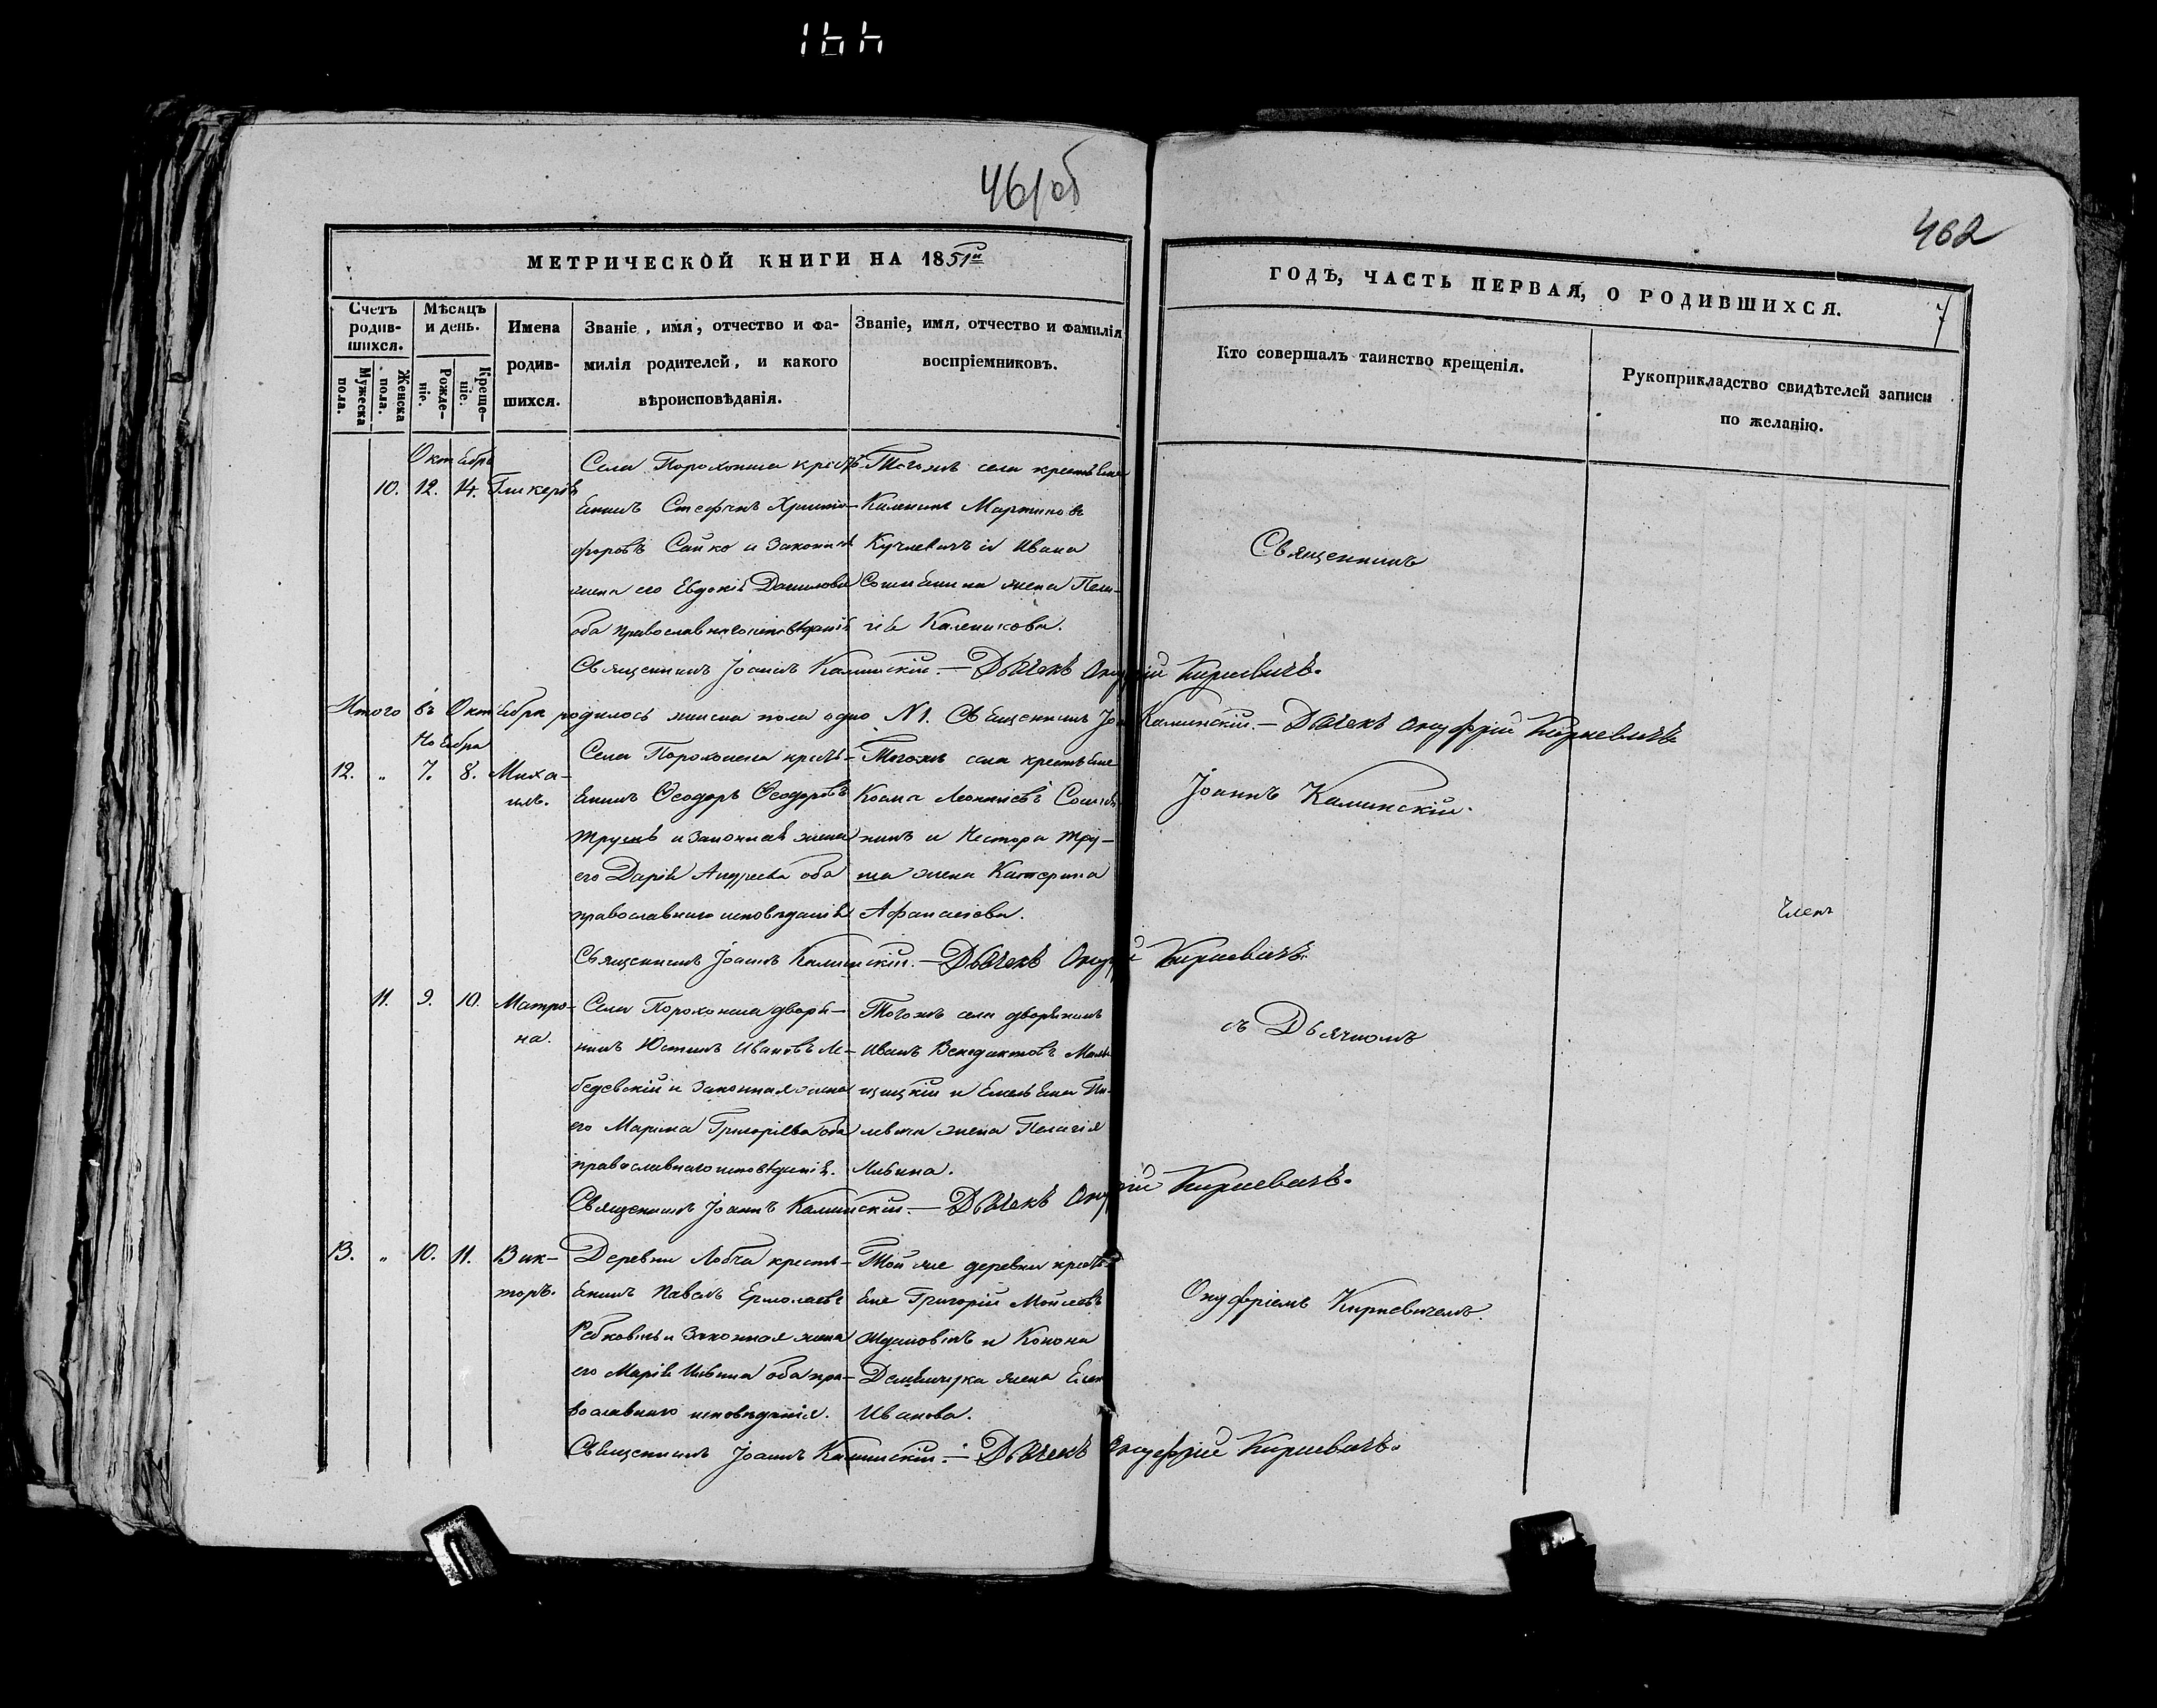 144
461об
462
МЕТРИЧЕСКОЙ КНИГИ НА 1851й
ГОДЪ, ЧАСТЬ ПЕРВАЯ, О РОДИВШИХСЯ.
7
Счетъ родив-шихся.
Мужеска пола.
Женска пола.
Мѣсяцъ и день.
Рожде-ніе.
Креще-ніе.
Имена
родив-
шихся.
Званіе, имя, отчество и фа-
милія родителей, и какого
вѣроисповѣданія.
Званіе, имя, отчество и фамилія
воспріемниковъ.
Кто совершалъ таинство крещенія.
Рукоприкладство свидѣтелей записи
по желанію.
Октябрь
10. 12. 14. Гликерія
Села Порохонска крестъ-
янинъ Стефанъ Христо-
форовъ Сайко и законная
жена его Евдокія Данилова
оба православнаго исповѣданія
Тогожъ села крестьяне
Мартиновъ
и Ивана
жена Пела-
гія
Священникъ Іоаннъ Калинскій. — Дьячекъ Онуфрій Кирневичъ.
Итого въ Октябрѣ родилось женска пола одно №1. Священникъ Калинскій. — Дьячекъ Онуфрій Кирневичъ
Ноября
12. „ 7. 8. Миха-
илъ.
Села крестъ-
янинъ Ѳеодоръ Ѳеодоровъ
и законная жена
его Дарія Андреева оба
православнаго исповѣданія
Тогожъ села крестьяне
Косма Леонтіевъ
нинъ и Нестора Тру-
ша жена Катерина
Афанасіева.
Священникъ Іоаннъ Калинскій. — Дьячекъ Кирневичъ.
11. 9. 10. Матро-
на.
Села Порохонска дворя-
нинъ Юстинъ Ивановъ Ле-
бедевскій и законная жена
его Марина Григоріева оба
православнаго исповѣданія.
Тогожъ села дворянинъ
Иванъ Венедиктовъ
и Емельяна
жена Пелагія
Ильина.
Священникъ Іоаннъ Калинскій. — Дьячекъ Кирневичъ.
13. „ 10. 11. Вик-
торъ.
Деревни Лобча крестъ-
янинъ Павелъ Ермолаевъ
и законная жена
его Марія Ильина оба пра-
вославнаго исповѣданія.
Той же деревни крестъ-
яне Григорій Мойсеевъ
и Конона
жена
Иванова.
Священникъ Іоаннъ Калинскій. — Дьячекъ Онуфрій Кирневичъ.
Священникъ
Іоаннъ Калинскій.
съ Дьячкомъ
Онуфріемъ Кирневичемъ.
Членъ